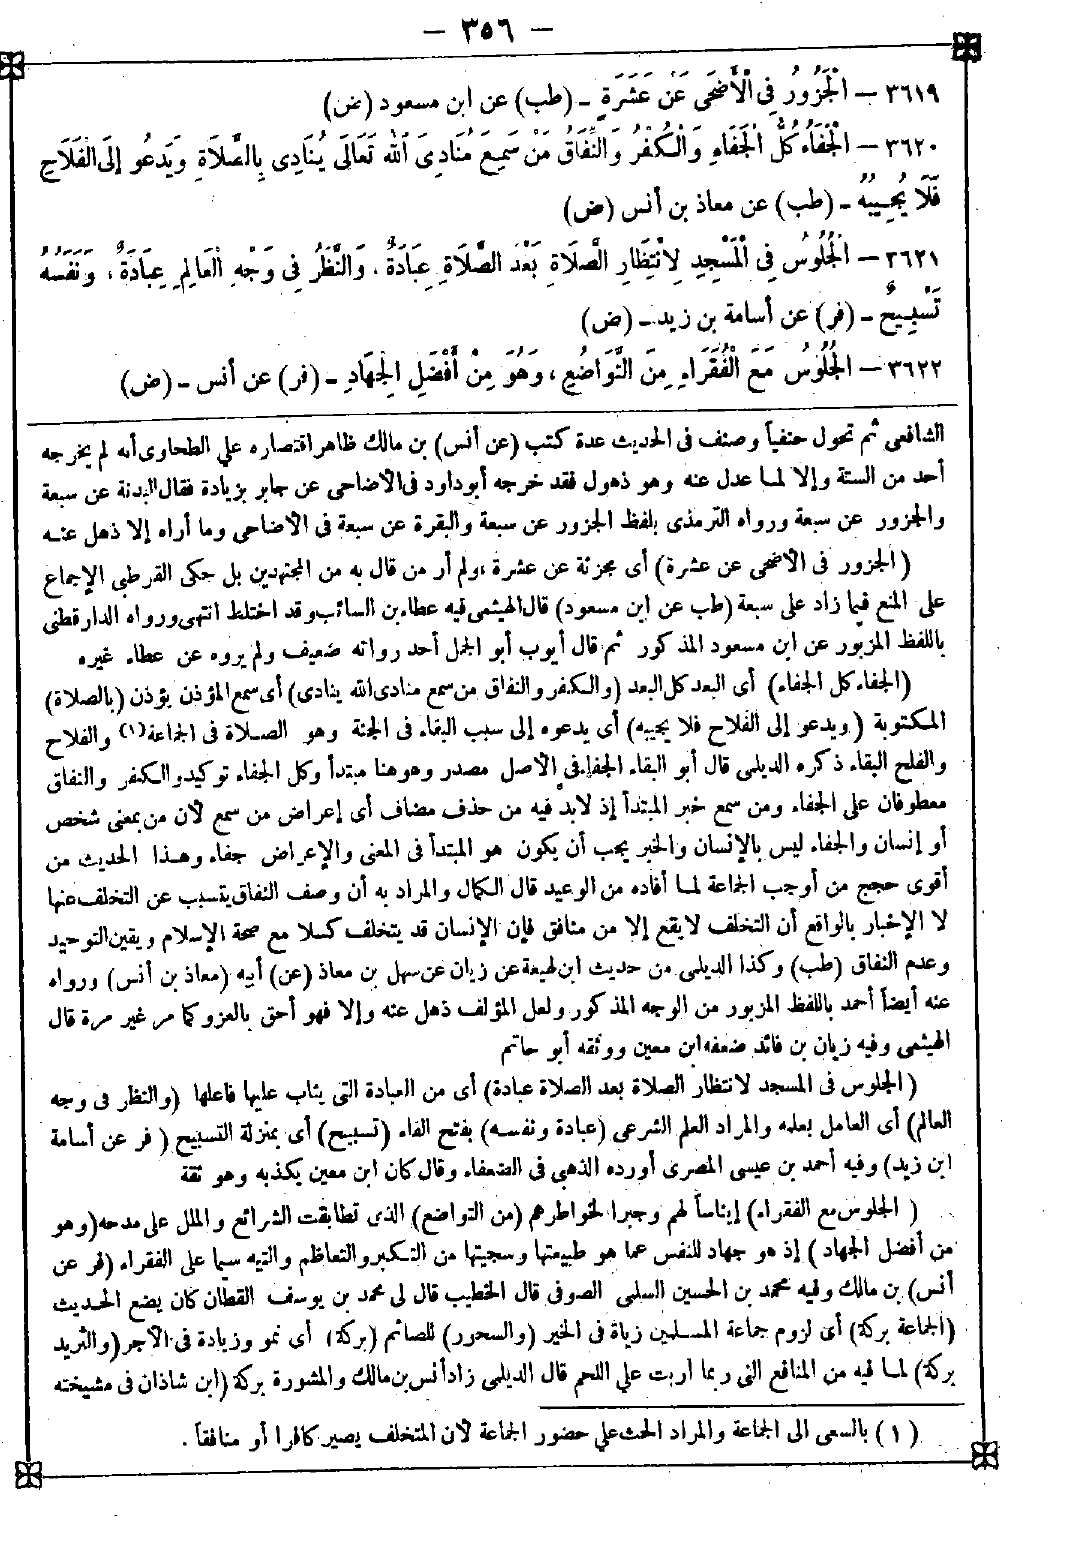 — ٣٥٦ —
٣٦١٩ — الْجَزُورُ فِى الْأَضْحَى عَنْ عَشَرَةٍ ـ (طب) عن ابن مسعود (ض)
٣٦٢٠ — الْجَفَاءُ كُلُّ الْجَفَاءِ وَالْكُفْرُ وَالنِّفَاقُ مَنْ سَمِعَ مُنَادِىَ اللهِ تَعَالَى يُنَادِى بِالصَّلَاةِ وَيَدْعُو إِلَى الْفَلَاحِ
فَلَا يُجِيبُهُ ـ (طب) عن معاذ بن أنس (ض)
٣٦٢١ — الْجُلُوسُ فِى الْمَسْجِدِ لِانْتِظَارِ الصَّلَاةِ بَعْدَ الصَّلَاةِ عِبَادَةٌ ، وَالنَّظَرُ فِى وَجْهِ الْعَالِمِ عِبَادَةٌ ، وَنَفَسُهُ
تَسْبِيحٌ ـ (فر) عن أسامة بن زيد ـ (ض)
٣٦٢٢ — الْجُلُوسُ مَعَ الْفُقَرَاءِ مِنَ التَّوَاضُعِ ، وَهُوَ مِنْ أَفْضَلِ الْجِهَادِ ـ (فر) عن أنس ـ (ض)
الشافعى ثم تحول حنفياً وصنف فى الحديث عدة كتب (عن أنس) بن مالك ظاهر اقتصاره على الطحاوى أنه لم يخرجه
أحد من الستة وإلا لما عدل عنه وهو ذهول فقد خرجه أبو داود فى الأضاحى عن جابر بزيادة فقال البدنة عن سبعة
والجزور عن سبعة ورواه الترمذى بلفظ الجزور عن سبعة والبقرة عن سبعة فى الأضاحى وما أراه إلا ذهل عنه
(الجزور فى الأضحى عن عشرة) أى مجزئة عن عشرة ، ولم أر من قال به من المجتهدين بل حكى القرطبى الإجماع
على المنع فيما زاد على سبعة (طب عن ابن مسعود) قال الهيثمى فيه عطاء بن السائب وقد اختلط انتهى ورواه الدارقطنى
باللفظ المزبور عن ابن مسعود المذكور ثم قال أيوب أبو الجمل أحد رواته ضعيف ولم يروه عن عطاء غيره
(الجفاء كل الجفاء) أى البعد كل البعد (والكفر والنفاق من سمع منادى الله ينادى) أى سمع المؤذن يؤذن (بالصلاة)
المكتوبة (ويدعو إلى الفلاح فلا يجيبه) أى يدعوه إلى سبب البقاء فى الجنة وهو الصلاة فى الجماعة(١) والفلاح
والفلح البقاء ذكره الديلمى قال أبو البقاء الجفاء فى الأصل مصدر وهو هنا مبتدأ وكل الجفاء توكيد والكفر والنفاق
معطوفان على الجفاء ومن سمع خبر المبتدأ إذ لابدّ فيه من حذف مضاف أى إعراض من سمع لأن من بمعنى شخص
أو إنسان والجفاء ليس بالإنسان والخبر يجب أن يكون هو المبتدأ فى المعنى والإعراض جفاء وهذا الحديث من
أقوى حجج من أوجب الجماعة لما أفاده من الوعيد قال الكمال والمراد به أن وصف النفاق يتسبب عن التخلف عنها
لا الإخبار بالواقع أن التخلف لا يقع إلا من منافق فإن الإنسان قد يتخلف كسلا مع صحة الإسلام ويقين التوحيد
وعدم النفاق (طب) وكذا الديلمى من حديث ابن لهيعة عن زبان عن سهل بن معاذ (عن) أبيه (معاذ بن أنس) ورواه
عنه أيضاً أحمد باللفظ المزبور من الوجه المذكور ولعل المؤلف ذهل عنه وإلا فهو أحق بالعزو كما مر غير مرة قال
الهيثمى وفيه زبان بن فائد ضعفه ابن معين ووثقه أبو حاتم
(الجلوس فى المسجد لانتظار الصلاة بعد الصلاة عبادة) أى من العبادة التى يثاب عليها فاعلها (والنظر فى وجه
العالم) أى العامل بعلمه والمراد العلم الشرعى (عبادة ونفسه) بفتح الفاء (تسبيح) أى بمنزلة التسبيح (فر عن أسامة
ابن زيد) وفيه أحمد بن عيسى المصرى أورده الذهبى فى الضعفاء وقال كان ابن معين يكذبه وهو ثقة
(الجلوس مع الفقراء) إيناساً لهم وجبرا لخواطرهم (من التواضع) الذى تطابقت الشرائع والملل على مدحه (وهو
من أفضل الجهاد) إذ هو جهاد للنفس عما هو طبيعتها وسجيتها من التكبر والتعاظم والتيه سيما على الفقراء (فر عن
أنس) بن مالك وفيه محمد بن الحسين السلمى الصوفى قال الخطيب قال لى محمد بن يوسف القطان كان يضع الحديث
(الجماعة بركة) أى لزوم جماعة المسلمين زيادة فى الخير (والسحور) للصائم (بركة) أى نمو وزيادة فى الأجر (والثريد
بركة) لما فيه من المنافع التى ربما أربت على اللحم قال الديلمى زاد أنس بن مالك والمشورة بركة (ابن شاذان فى مشيخته
(١) بالسعى الى الجماعة والمراد الحث على حضور الجماعة لأن المتخلف يصير كافرا أو منافقاً .